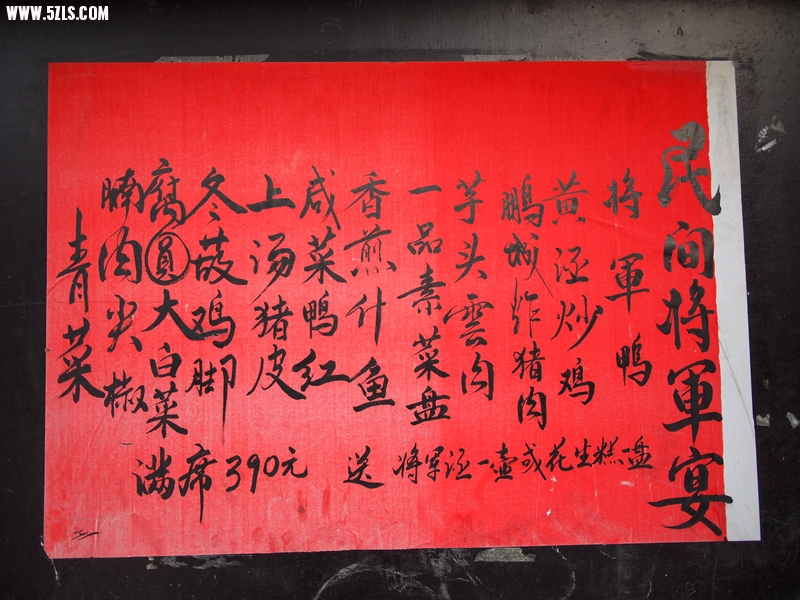 WWW.5ZLS.COM
民间将軍宴
将軍鴨
黄泾炒鸡
鹏城炸猪肉
芋头雲肉
一品素菜盘
香煎什鱼
咸菜鸭红
上汤猪皮
冬菇鸡脚
腐圓大白菜
腩肉尖椒
青菜
满席390元 送 将军泾一壶或花生糕一盘